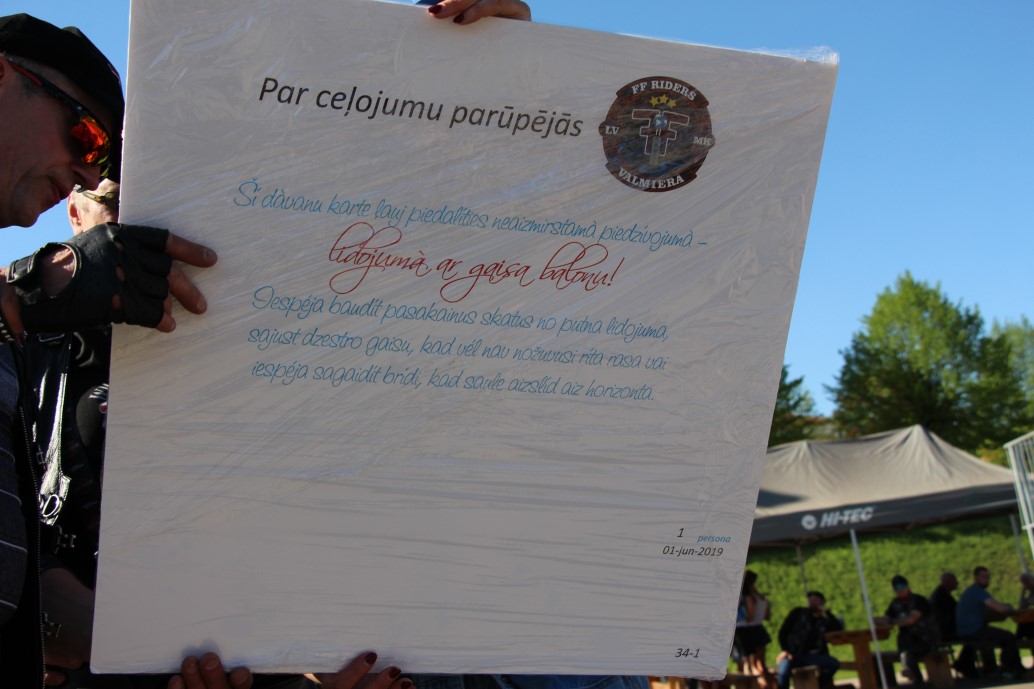 Par ceļojumu parūpējās
FF RIDERS
LV MK
VALMIERA
Šī dāvanu karte ļauj piedalīties neaizmirstamā piedzīvojumā –
lidojumā ar gaisa balonu!
Iespēja baudīt pasakainus skatus no putna lidojuma,
sajust dzestro gaisu, kad vēl nav nožuvusi rīta rasa vai
iespēja sagaidīt brīdi, kad saule aizslīd aiz horizonta.
1 persona
01-jun-2019
34-1
HI-TEC